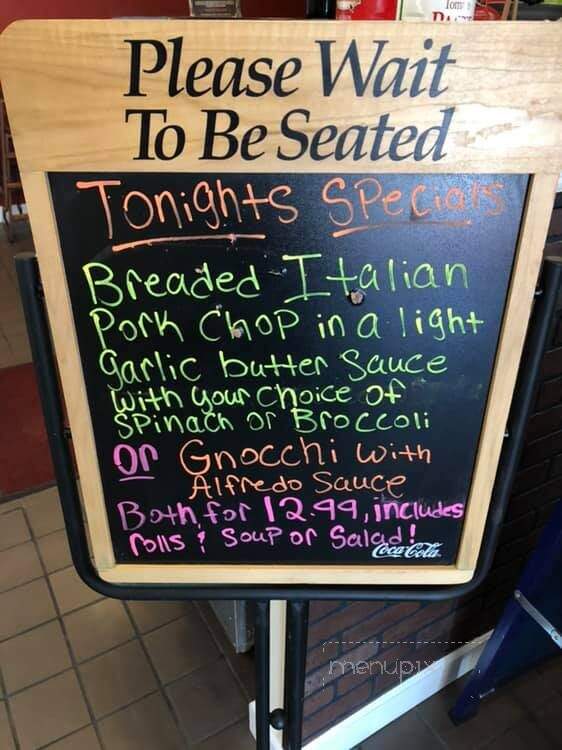 Tom
Please Wait
To Be Seated
Tonights Specials
Breaded Italian
Pork Chop in a light
garlic butter Sauce
with your choice of
Spinach or Broccoli
or Gnocchi with
Alfredo Sauce
Both for 12.99, includes
rolls & Soup or Salad!
Coca-Cola
menupix